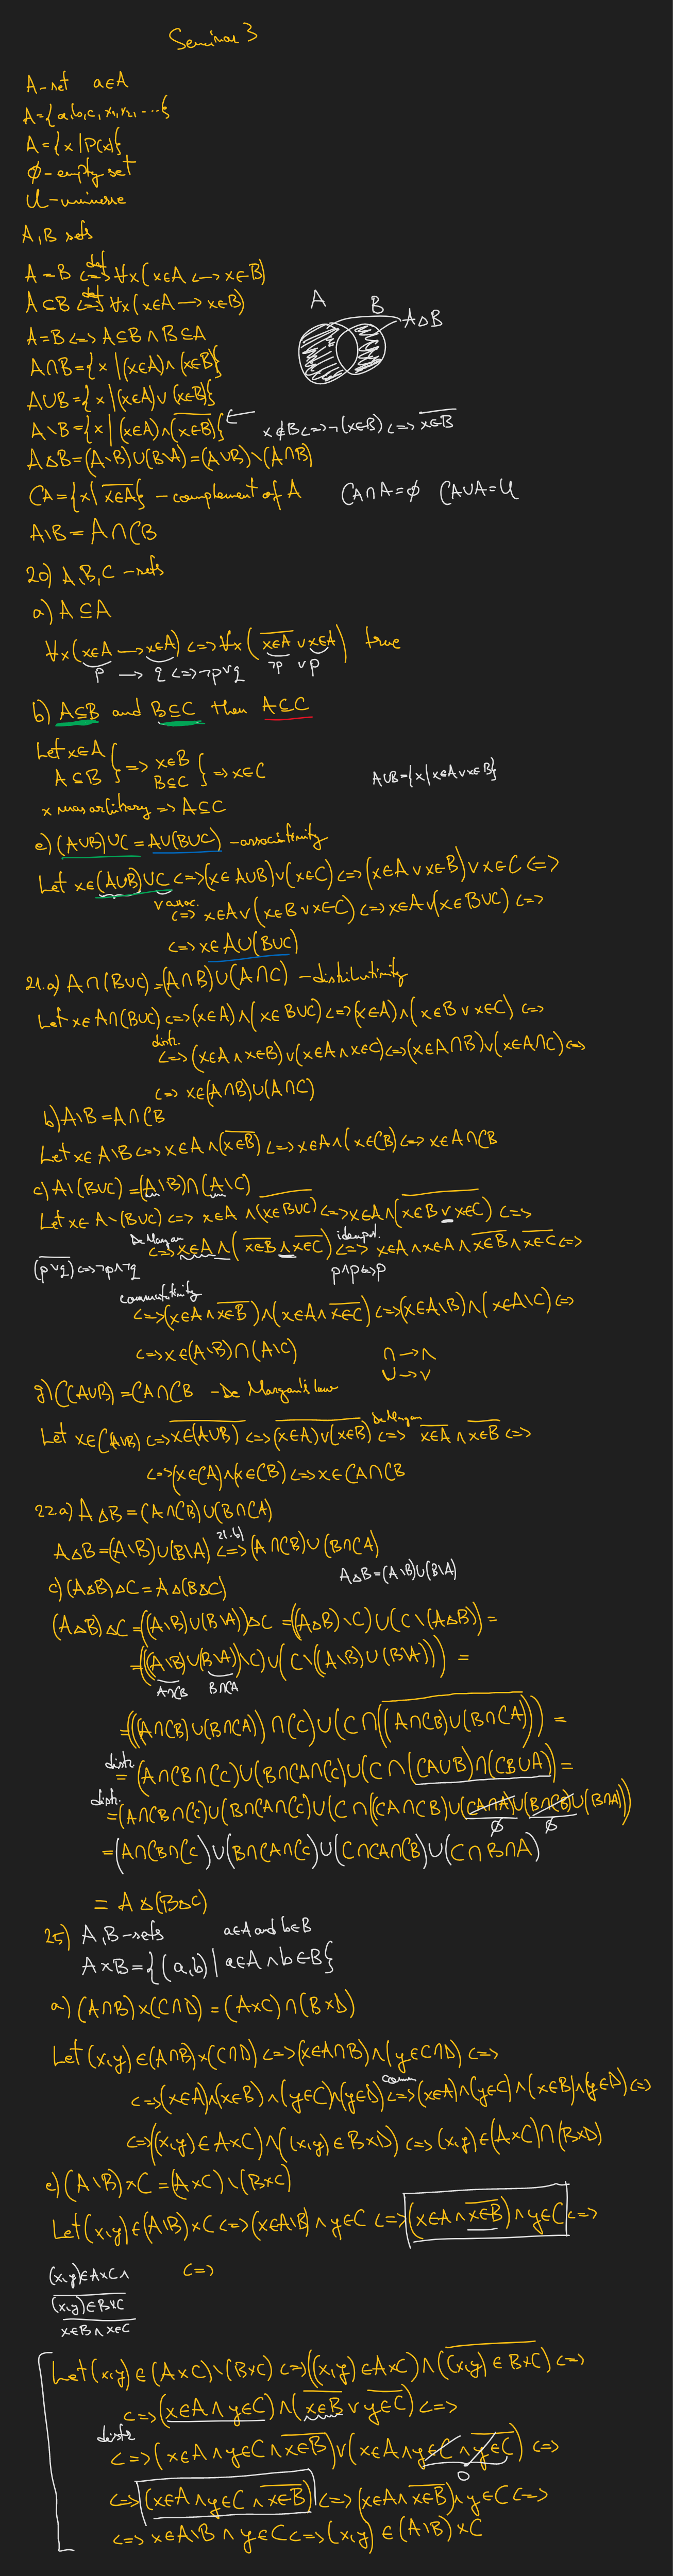 Seminar 3
A-set a∈A
A={a,b,c,x₁,x₂,...}
A={x|P(x)}
∅-empty set
U-universe
A,B sets
A=B <=> def ∀x(x∈A <-> x∈B)
A⊆B <=> def ∀x(x∈A -> x∈B)
A=B <=> A⊆B ∧ B⊆A
A B AΔB
A∩B={x|(x∈A)∧(x∈B)}
A∪B={x|(x∈A)∨(x∈B)}
A\B={x|(x∈A)∧(x̅∈̅B̅)} x∉B <=> ¬(x∈B) <=> x̅∈̅B̅
AΔB=(A\B)∪(B\A)=(A∪B)\(A∩B)
CA={x|x̅∈̅A̅} - complement of A CA∩A=∅ CA∪A=U
A\B=A∩CB
20) A,B,C-sets
a) A⊆A
∀x(x∈A -> x∈A) <=> ∀x(x̅∈̅A̅ ∨ x∈A) true
p -> q <=> ¬p∨q ¬p ∨p
b) A⊆B and B⊆C then A⊆C
Let x∈A
A⊆B } => x∈B
B⊆C } => x∈C
A∪B={x|x∈A∨x∈B}
x was arbitrary => A⊆C
e) (A∪B)∪C=A∪(B∪C) -associativity
Let x∈(A∪B)∪C <=> (x∈A∪B)∨(x∈C) <=> (x∈A∨x∈B)∨x∈C <=>
∨ assoc. <=> x∈A∨(x∈B∨x∈C) <=> x∈A∨(x∈B∪C) <=>
<=> x∈A∪(B∪C)
21.a) A∩(B∪C)=(A∩B)∪(A∩C) -distributivity
Let x∈A∩(B∪C) <=> (x∈A)∧(x∈B∪C) <=> (x∈A)∧(x∈B∨x∈C) <=>
distr. <=> (x∈A∧x∈B)∨(x∈A∧x∈C) <=> (x∈A∩B)∨(x∈A∩C) <=>
<=> x∈(A∩B)∪(A∩C)
b) A\B=A∩CB
Let x∈A\B <=> x∈A∧(x̅∈̅B̅) <=> x∈A∧(x∈CB) <=> x∈A∩CB
c) A\(B∪C)=(A\B)∩(A\C)
Let x∈A\(B∪C) <=> x∈A∧(x̅∈̅B̅∪̅C̅) <=> x∈A∧(x̅∈̅B̅∨̅x̅∈̅C̅) <=>
De Morgan <=> x∈A∧(x̅∈̅B̅∧x̅∈̅C̅) idempot. <=> x∈A∧x∈A∧x̅∈̅B̅∧x̅∈̅C̅ <=>
(p̅∨̅q̅) <=> ¬p∧¬q p∧p<=>p
commutativity
<=> (x∈A∧x̅∈̅B̅)∧(x∈A∧x̅∈̅C̅) <=> (x∈A\B)∧(x∈A\C) <=>
<=> x∈(A\B)∩(A\C) ∩->∧
∪->∨
g) C(A∪B)=CA∩CB -De Morgan's law
Let x∈C(A∪B) <=> x̅∈̅(̅A̅∪̅B̅)̅ <=> (̅x̅∈̅A̅)̅∨̅(̅x̅∈̅B̅)̅ De Morgan <=> x̅∈̅A̅ ∧ x̅∈̅B̅ <=>
<=> (x∈CA)∧(x∈CB) <=> x∈CA∩CB
22.a) AΔB=(A∩CB)∪(B∩CA)
AΔB=(A\B)∪(B\A) 21.b) <=> (A∩CB)∪(B∩CA)
AΔB=(A\B)∪(B\A)
c) (AΔB)ΔC=AΔ(BΔC)
(AΔB)ΔC=((A\B)∪(B\A))ΔC=((AΔB)\C)∪(C\(AΔB))=
=(((A\B)∪(B\A))\C)∪(C\((A\B)∪(B\A)))=
A∩CB B∩CA
=(((A∩CB)∪(B∩CA))∩CC)∪(C∩(̅(̅A̅∩̅C̅B̅)̅∪̅(̅B̅∩̅C̅A̅)̅)̅)=
distr. =(A∩CB∩CC)∪(B∩CA∩CC)∪(C∩(CA∪B)∩(CB∪A))=
distr. =(A∩CB∩CC)∪(B∩CA∩CC)∪(C∩((CA∩CB)∪(CA∩A)∪(B∩CB)∪(B∩A))
∅ ∅
=(A∩CB∩CC)∪(B∩CA∩CC)∪(C∩CA∩CB)∪(C∩B∩A)
=AΔ(BΔC)
25) A,B-sets a∈A and b∈B
A×B={(a,b)|a∈A∧b∈B}
a) (A∩B)×(C∩D)=(A×C)∩(B×D)
Let (x,y)∈(A∩B)×(C∩D) <=> (x∈A∩B)∧(y∈C∩D) <=>
<=> (x∈A)∧(x∈B)∧(y∈C)∧(y∈D) comm <=> (x∈A)∧(y∈C)∧(x∈B)∧(y∈D) <=>
<=> ((x,y)∈A×C)∧((x,y)∈B×D) <=> (x,y)∈(A×C)∩(B×D)
e) (A\B)×C=(A×C)\(B×C)
Let (x,y)∈(A\B)×C <=> (x∈A\B)∧y∈C <=> (x∈A∧x̅∈̅B̅)∧y∈C <=>
(x,y)∈A×C∧ <=>
(̅x̅,̅y̅)̅∈̅B̅×̅C̅
x̅∈̅B̅∧̅x̅∈̅C̅
Let (x,y)∈(A×C)\(B×C) <=> ((x,y)∈A×C)∧(̅(̅x̅,̅y̅)̅∈̅B̅×̅C̅)̅ <=>
<=> (x∈A∧y∈C)∧(x̅∈̅B̅∨y̅∈̅C̅) <=>
distr <=> (x∈A∧y∈C∧x̅∈̅B̅)∨(x∈A∧y∈C∧y̅∈̅C̅) <=>
0
<=> (x∈A∧y∈C∧x̅∈̅B̅) <=> (x∈A∧x̅∈̅B̅)∧y∈C <=>
<=> x∈A\B∧y∈C <=> (x,y)∈(A\B)×C